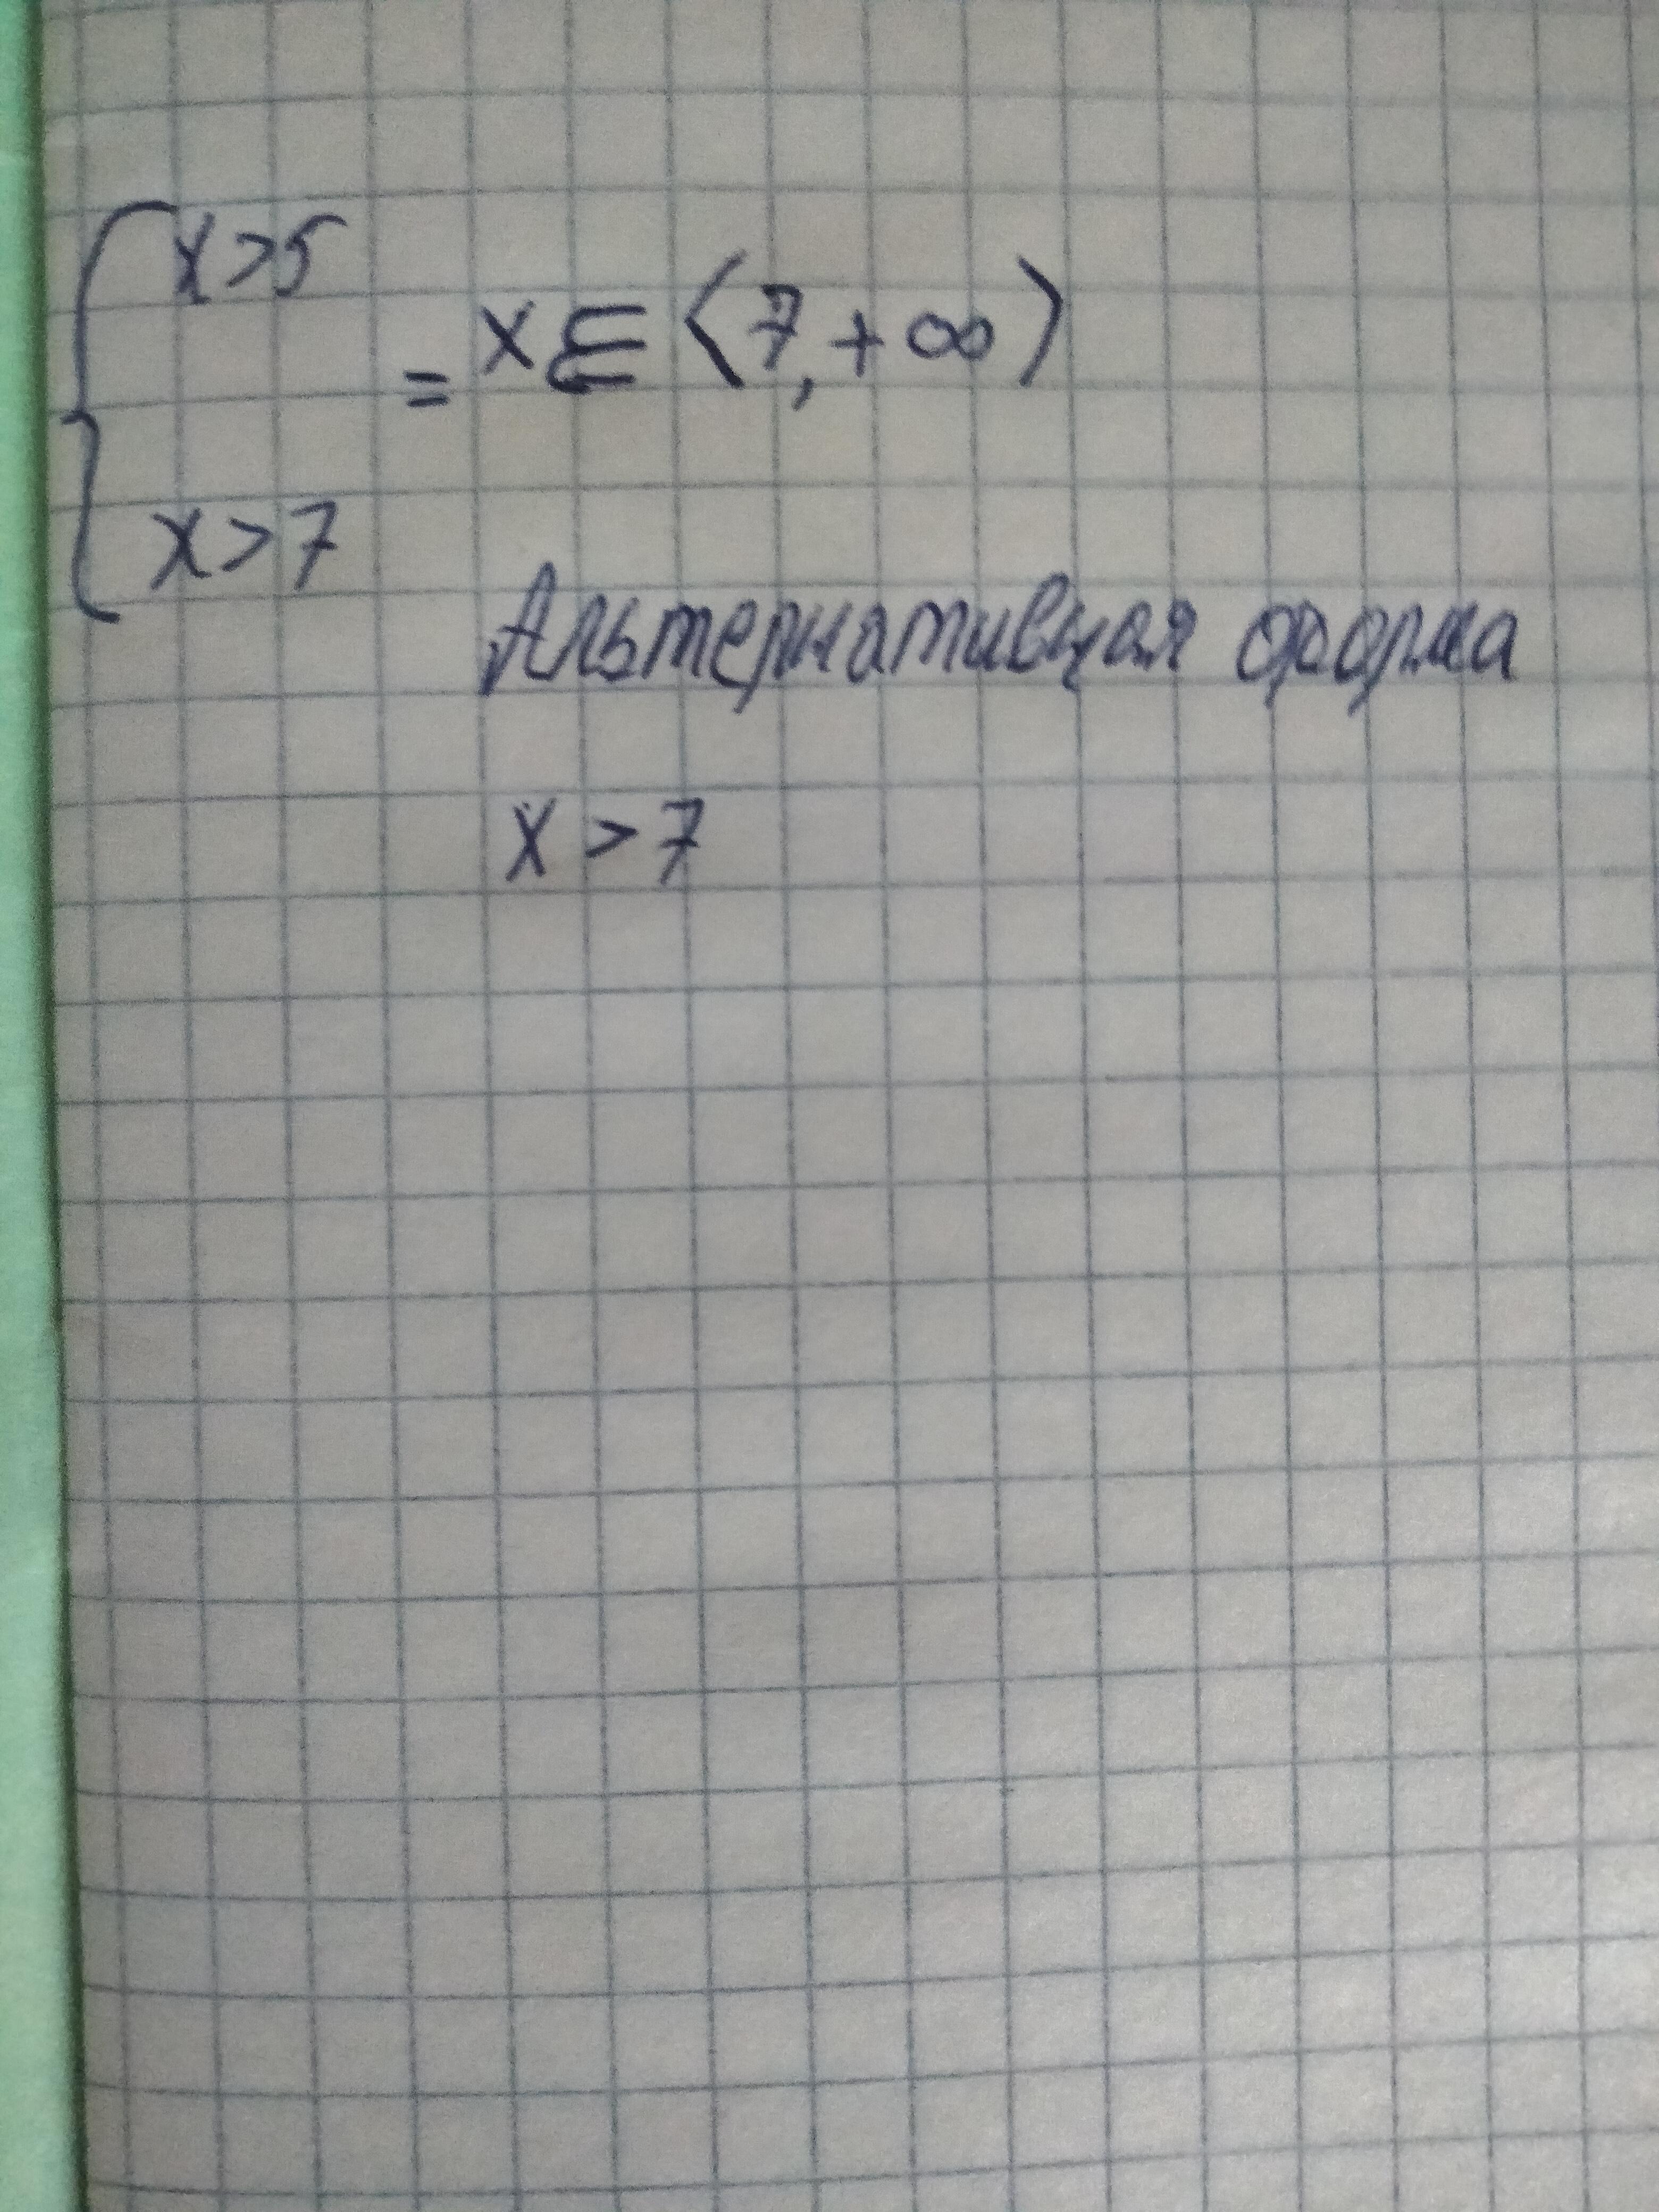 x>5
= x∈⟨7,+∞⟩
x>7
Альтернативная форма
x > 7